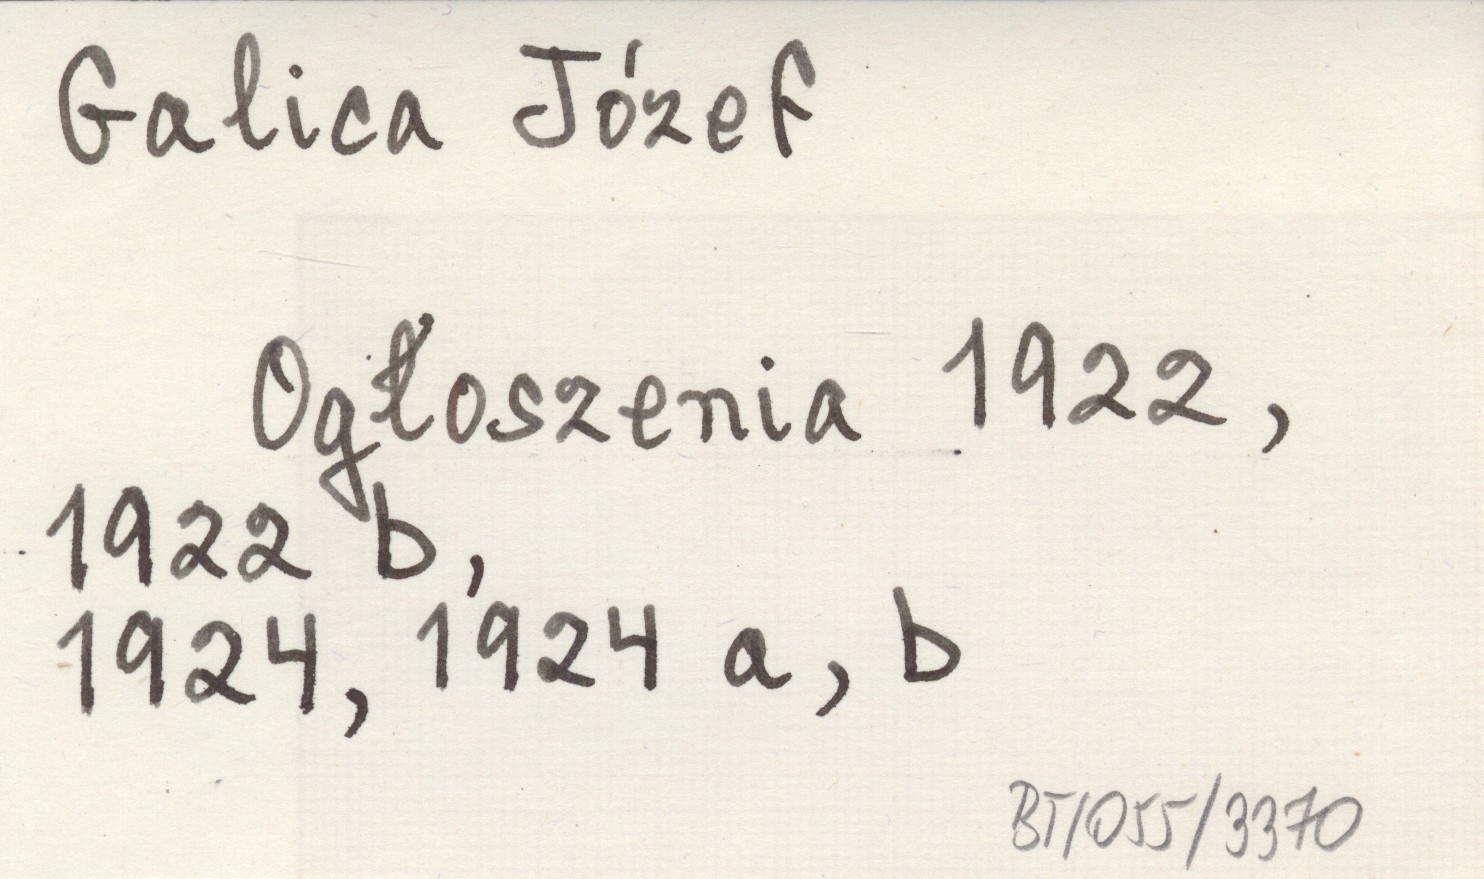 Galica Józef
Ogłoszenia 1922,
1922 b,
1924, 1924 a, b
BT/055/3370